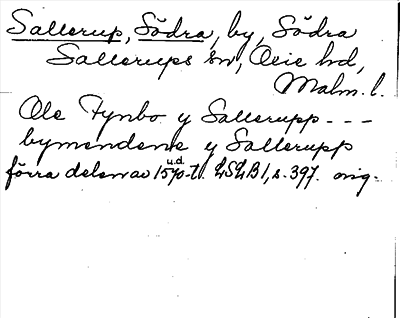 Sallerup, Södra, by, Södra
Sallerups sn, Oxie hd,
Malm. l.
Ole Fynbo y Sallerupp - - -
bymendene y Sallerupp
u.d.
förra delen av 1590-t. LSLB 1, s. 397. orig.